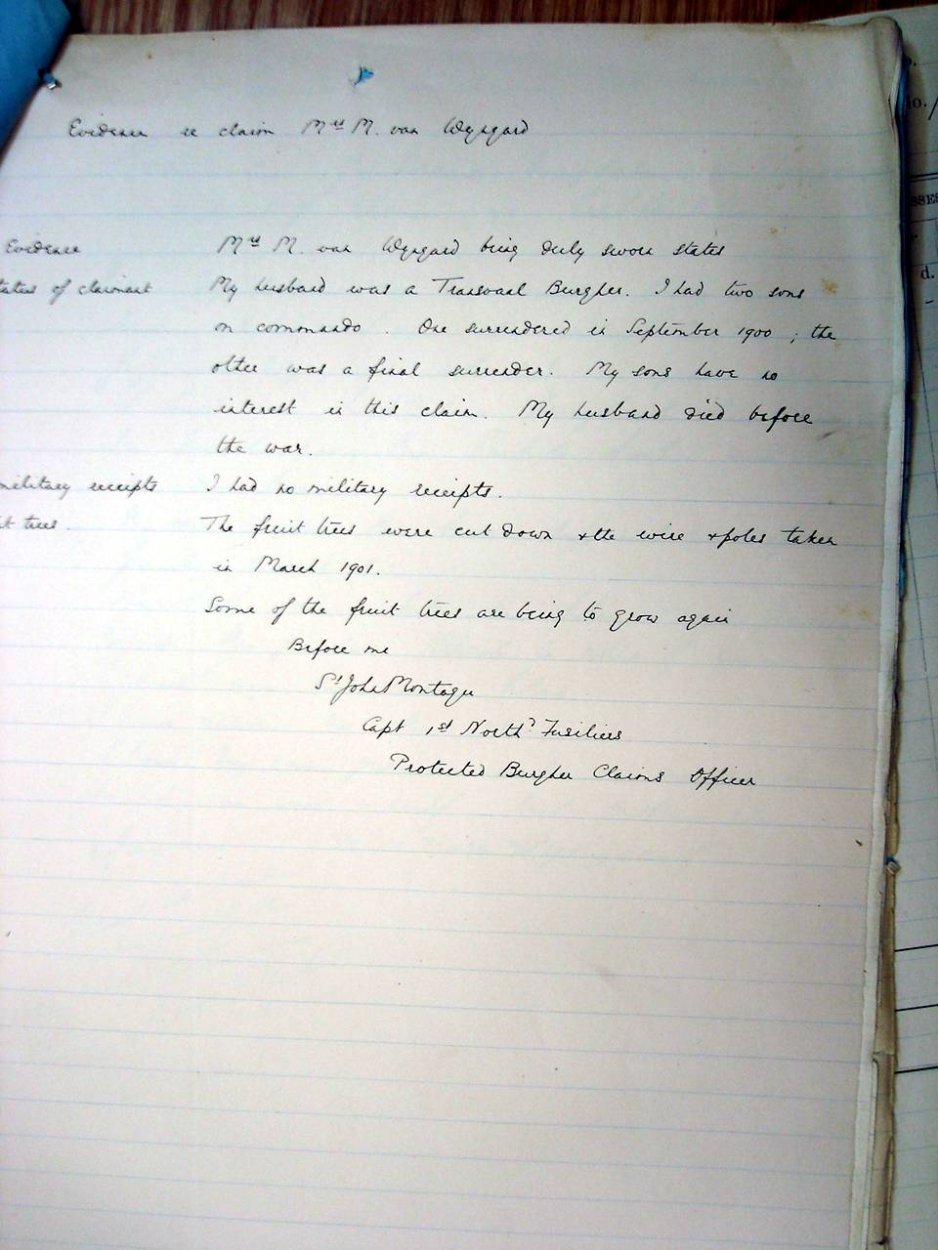 Evidence re claim Mrs M. van Wyngard
Evidence Mrs M. van Wyngard being duly sworn states
tatus of claimant My husband was a Transvaal Burgher. I had two sons
on commando. One surrendered in September 1900; the
other was a final surrender. My sons have no
interest in this claim. My husband died before
the war.
military receipts I had no military receipts.
it trees. The fruit trees were cut down & the wire & poles taken
in March 1901.
Some of the fruit trees are being to grow again
Before me
St John Montagu
Capt 1st Northd Fusiliers
Protected Burgher Claims Officer
o. /
SSES
d.